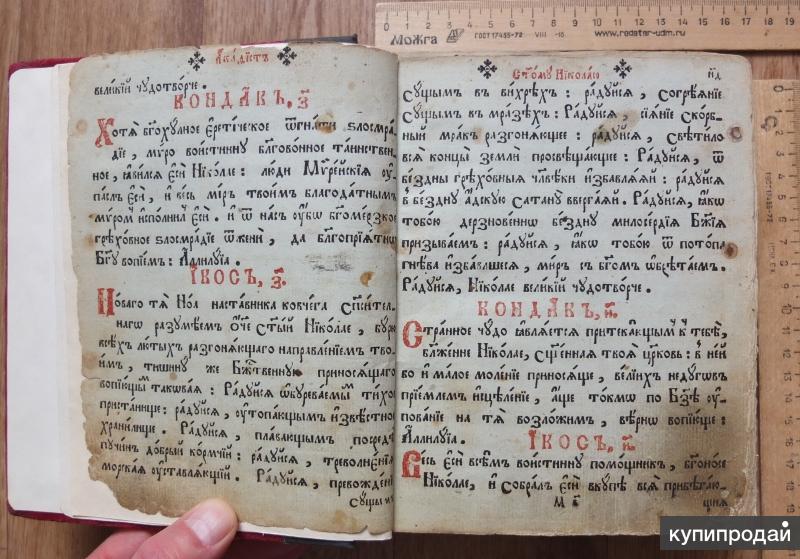 Акаѳістъ
великїй чꙋдотворче .
КОНДАКЪ, з҃
Хотѧ̀ бг҃охꙋлное є҆ретїческое ѿгна́ти ѕлосмра
дїе , мѵ́ро вои́стиннꙋ благово́нное таи́нствен
ное , ꙗ҆ви́лсѧ є҆сѝ Нїко́лае : лю́ди Мѵре́йскїѧ ᲂу҆
па́слъ є҆сѝ , и҆ ве́сь мі́ръ твои́мъ благода́тнымъ
мѵ́ромъ и҆спо́лнилъ є҆сѝ . и҆ ѿ на́съ ᲂу҆́бѡ бг҃оме́рзкое
грѣхо́вное ѕлосмра́дїе ѿженѝ , да бл҃гопрїѧ́тнѡ
Бг҃ꙋ вопїе́мъ : А҆ллилꙋ́їа .
І҆КОСЪ, з҃.
Но́ваго тѧ̀ Но́ѧ наста́вника ковче́га сп҃си́тел
нагѡ разꙋмѣ́емъ ѻ҆́ч҃е ст҃ы́й Нїко́лае , бꙋ́рю
всѣ́хъ лю́тыхъ разгонѧ́ющаго направле́нїемъ тво
и́мъ , тишинꙋ́ же Бж҃е́ственнꙋю приносѧ́щаго
вопїю́щымъ такѡва́ѧ : Ра́дꙋйсѧ ѡ҆бꙋрева́емыхъ ти́хое
приста́нище : ра́дꙋйсѧ , ᲂу҆топа́ющымъ и҆звѣ́стное
храни́лище . Ра́дꙋйсѧ , пла́вающымъ посредѣ̀
пꙋчи́нъ до́брый ко́рмчїй : ра́дꙋйсѧ , треволне́нїѧ
морска́ѧ ᲂу҆ставлѧ́ющїй . Ра́дꙋйсѧ , превожде́нїе
сꙋ́щымъ
Ст҃о́мꙋ Нїкола́ю
н҃д
сꙋ́щымъ въ ви́хрѣхъ : ра́дꙋйсѧ , согрѣ́ѧнїе
сꙋ́щымъ въ мра́зѣхъ : Ра́дꙋйсѧ , сїѧ́нїе ско́рб
ный мра́къ разгонѧ́ющее : ра́дꙋйсѧ , свѣти́ло
всѧ̑ концы̀ землѝ просвѣща́ющее : Ра́дꙋйсѧ , ѿ
бе́здны грѣхо́вныѧ чл҃вѣ́ки и҆збавлѧ́ѧй : ра́дꙋйсѧ
в бе́зднꙋ а҆́дскꙋю Сатанꙋ̀ вверга́ѧй . Ра́дꙋйсѧ , ꙗ҆́кѡ
тобо́ю дерзнове́ннѡ бе́зднꙋ милосе́рдїѧ Бж҃їѧ
призыва́емъ : ра́дꙋйсѧ , ꙗ҆́кѡ тобо́ю ѿ пото́па
гнѣ́ва и҆зба́вльшесѧ , ми́ръ съ бг҃омъ ѡ҆брѣта́емъ .
Ра́дꙋйсѧ, Нїко́лае вели́кїй чꙋдотво́рче .
КОНДАКЪ, и҃.
Стра́нное чꙋ́до ꙗ҆влѧ́етсѧ притека́ющымъ к̾ тебѣ̀,
бл҃же́нне Нїко́лае, сщ҃е́ннаѧ твоѧ̀ цр҃ковь : в̾ не́й
бо и҆ ма́лое моле́нїе принося́ще , вели́кихъ недꙋ́гѡвъ
прїе́млемъ и҆сцѣле́нїе , а҆́ще то́кмѡ по Бз҃ѣ ᲂу҆
пова́нїе на тѧ̀ возло́жимъ , вѣ́рнѡ вопїю́ще :
А҆ллилꙋ́їа .
І҆КОСЪ, и҃.
Ве́сь є҆сѝ всѣ́мъ вои́стиннꙋ помо́щникъ , бг҃оно́се
Нїко́лае , и҆ собра́лъ є҆сѝ вкꙋ́пѣ всѧ̑ прибѣга́ю
щыѧ
М
Можга
ГОСТ 17435-72
VIII -15
www.redstar-udm.ru
0 1 2 3 4 5 6 7 8 9 10 11 12 13 14 15 16 17 18 19
купипродай